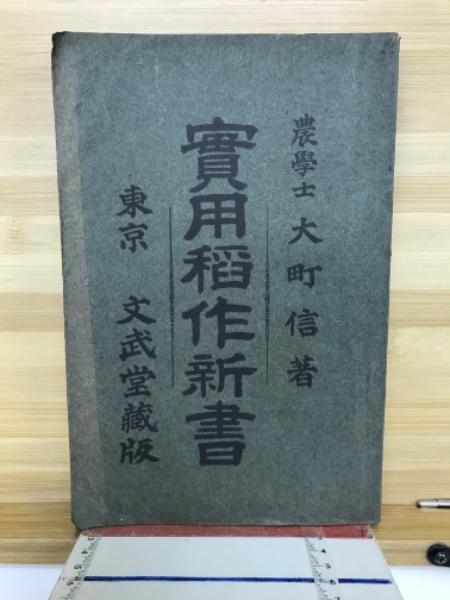 農學士 大町信著
實用稻作新書
東京 文武堂藏版